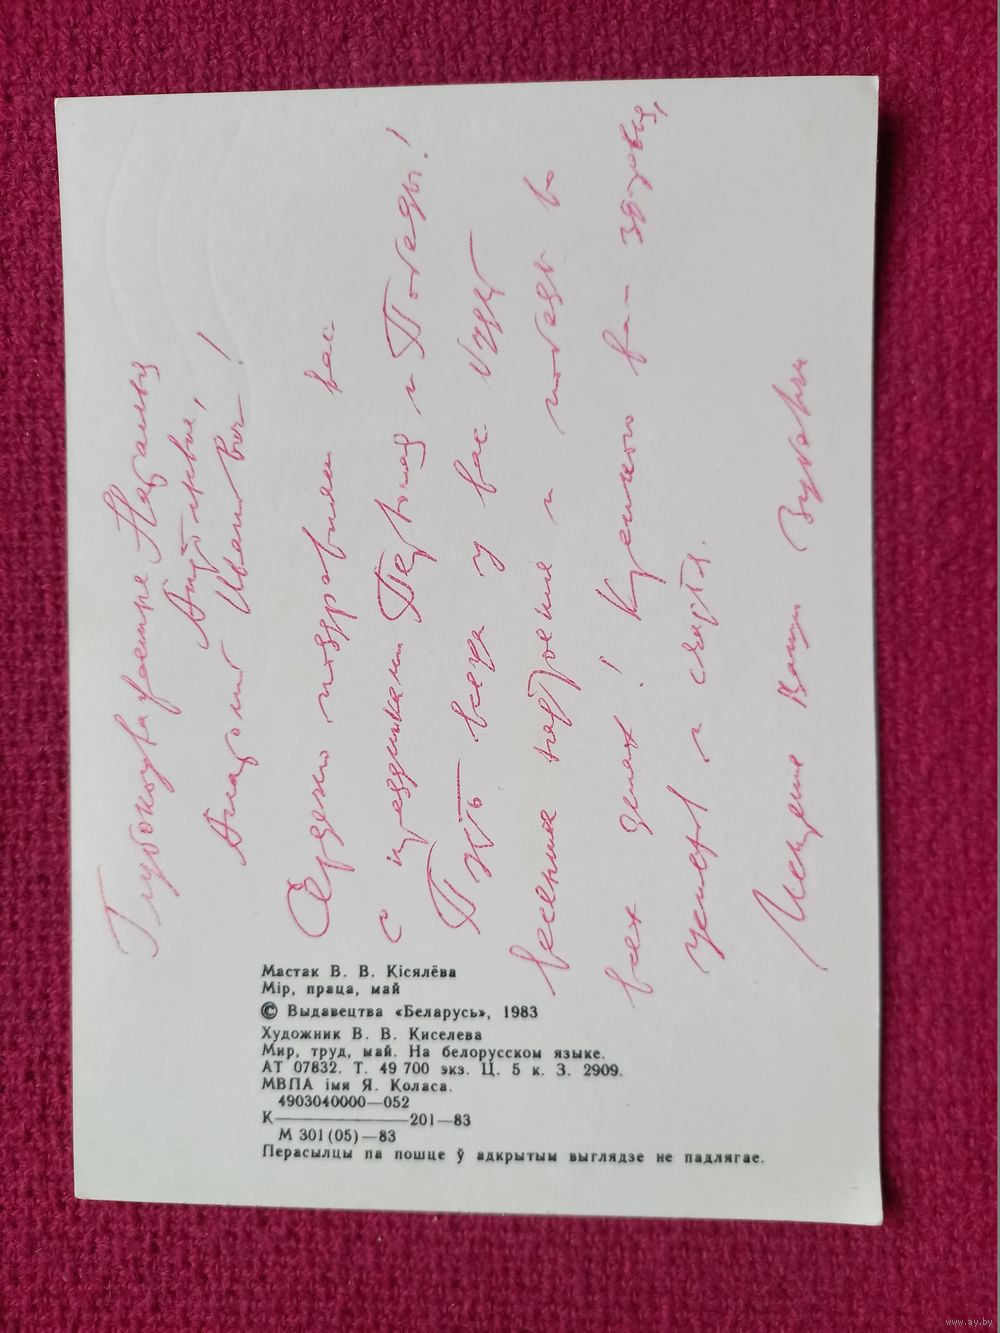 Глубокоуважаемые Наталья
Анатолий Иванович!
Сердечно поздравляем вас
с праздниками Первомая и Победы!
Пусть всегда у вас будет
весеннее настроение и победы во
всех делах! Крепкого вам здоровья,
успехов и счастья.
Искренне Ваши
Мастак В. В. Кісялёва
Мір, праца, май
© Выдавецтва «Беларусь», 1983
Художник В. В. Киселева
Мир, труд, май. На белорусском языке.
АТ 07832. Т. 49 700 экз. Ц. 5 к. З. 2909.
МВПА імя Я. Коласа.
4903040000—052
К————201—83
М 301(05)—83
Перасылцы па пошце ў адкрытым выглядзе не падлягае.
www.ay.by